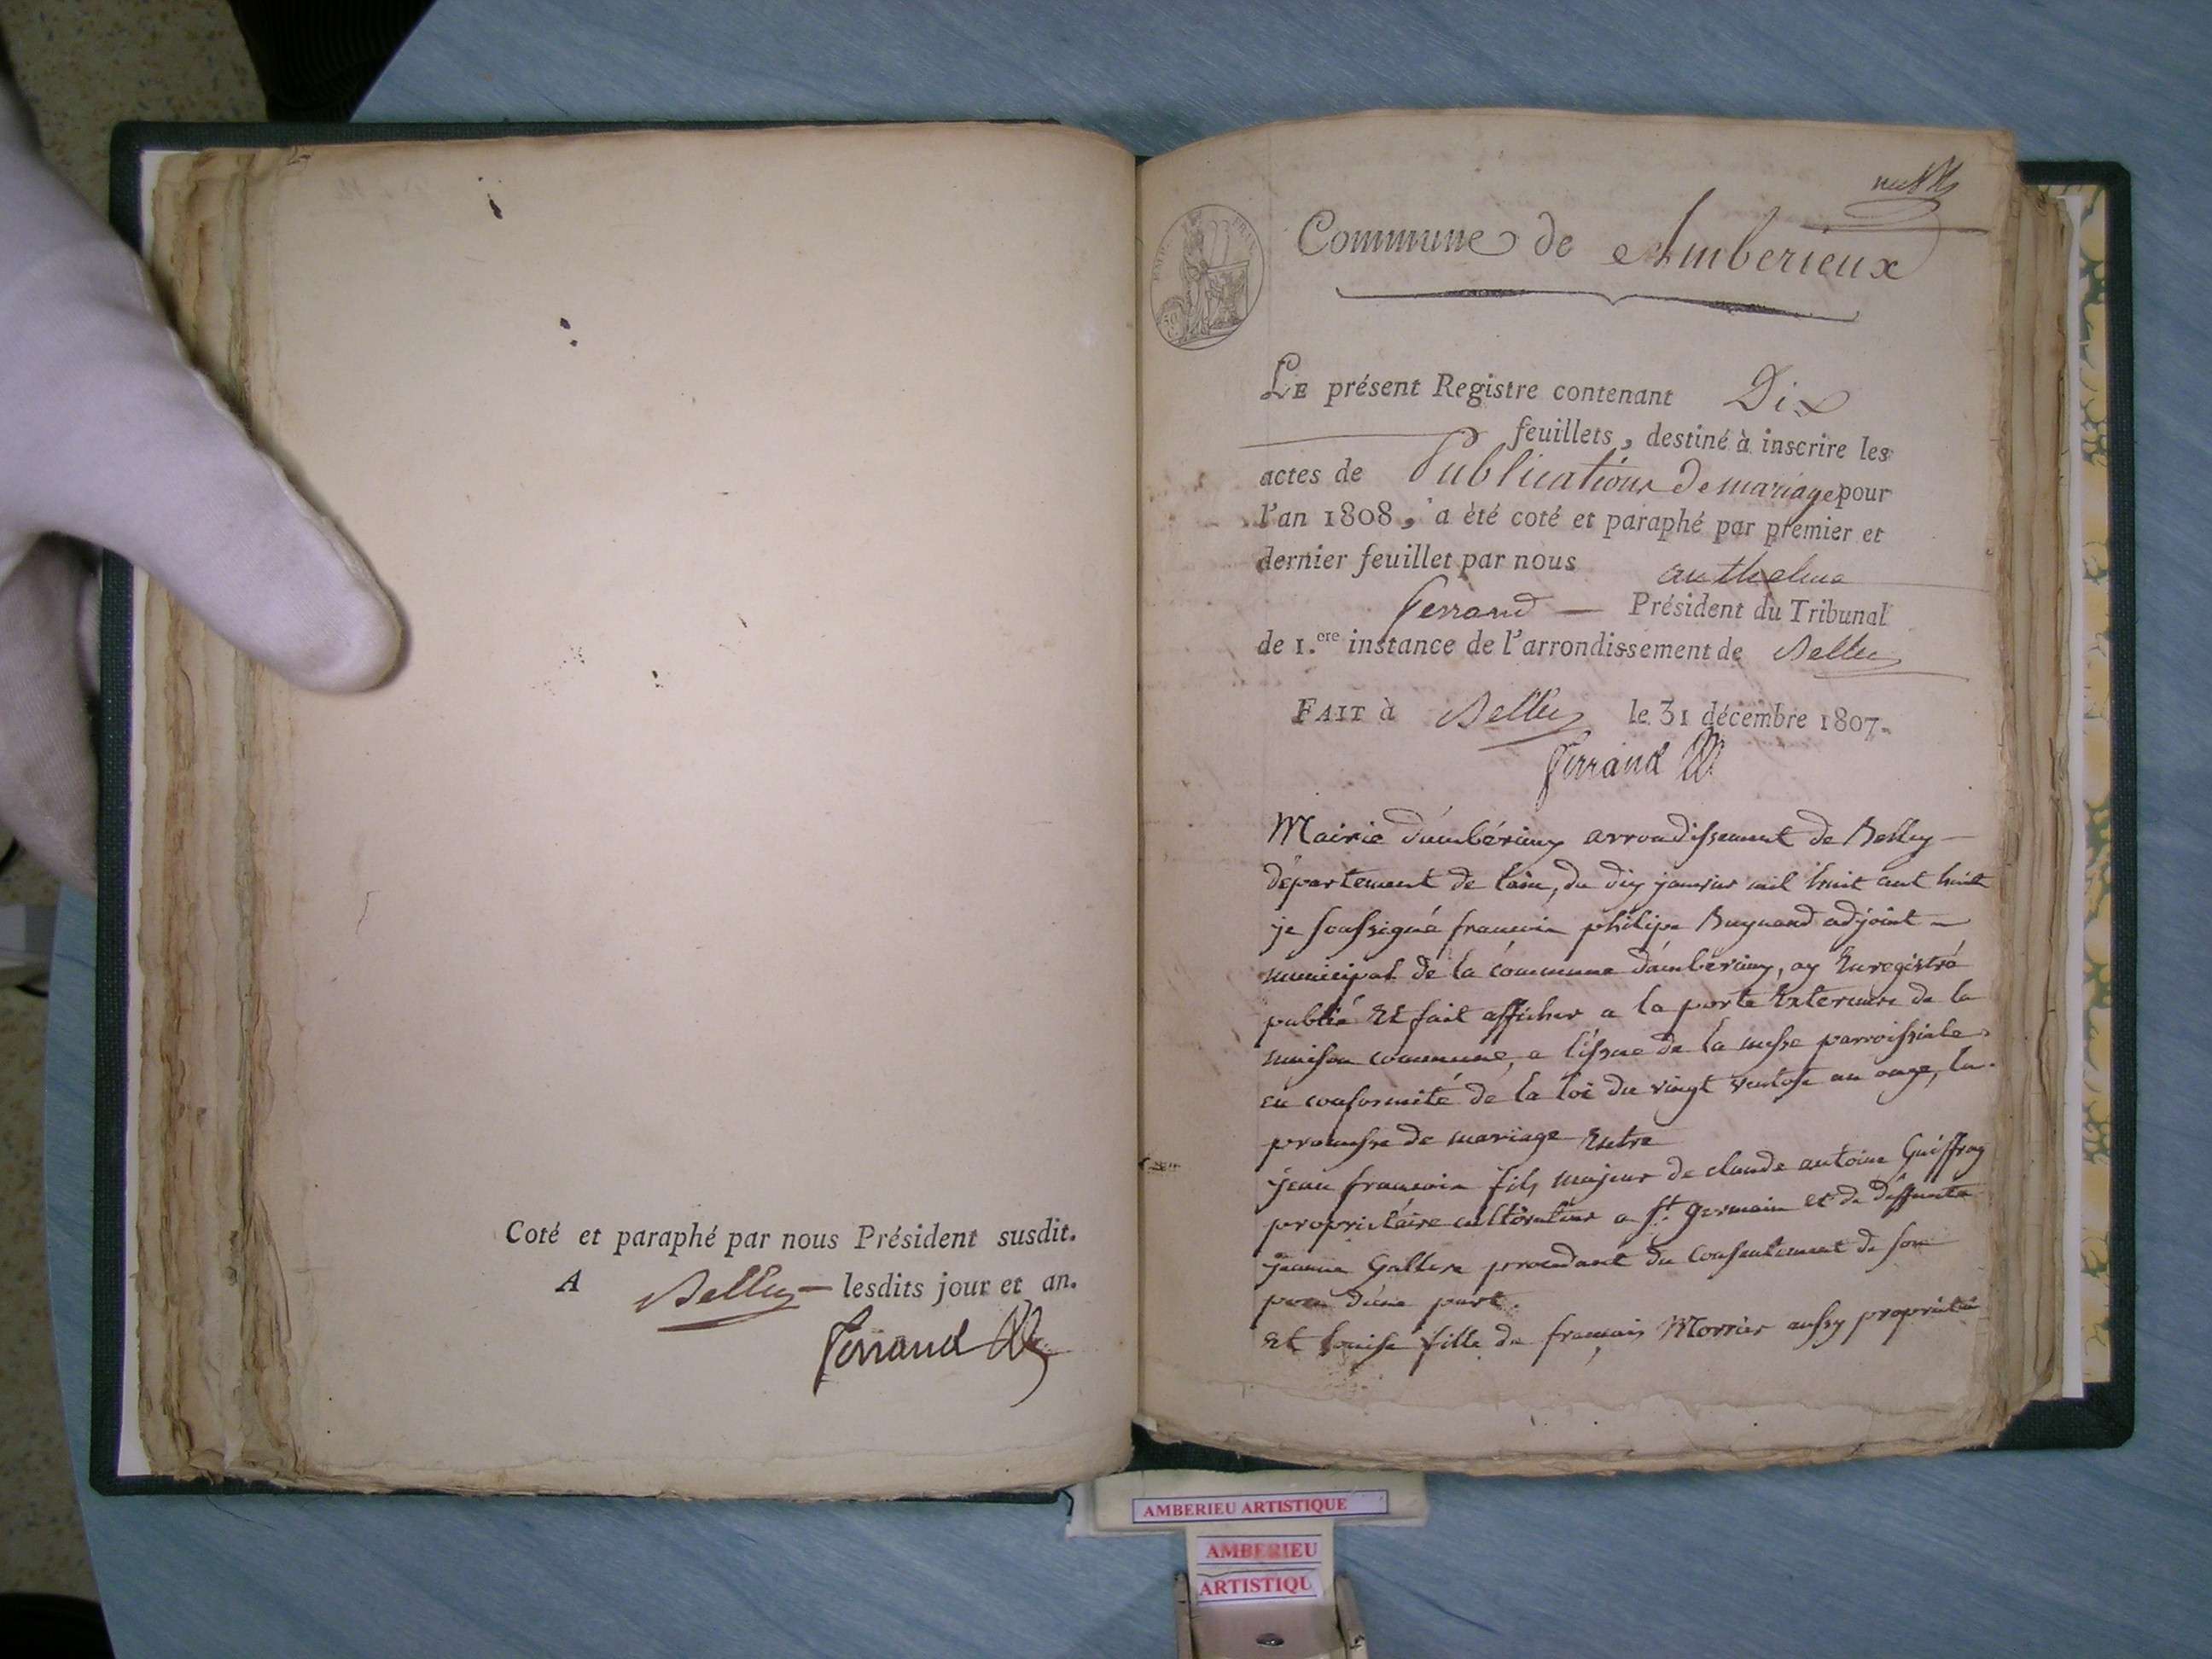 Coté et paraphé par nous Président susdit.
A Belley — lesdits jour et an.
Ferrand
Commune de Amberieux
LE présent Registre contenant Dix
feuillets, destiné à inscrire les
actes de Publications de mariage pour
l'an 1808, a été coté et paraphé par premier et
dernier feuillet par nous anthelme
Ferrand — Président du Tribunal
de 1.ere instance de l'arrondissement de Belley
FAIT à Belley le 31 décembre 1807.
Ferrand
Mairie d'ambérieux arrondissement de Belley
département de lain, du dix janvier mil huit cent huit
je soussigné francois philipe adjoint
municipal de la commune d'ambérieux, ay Enregistré
publié Et fait afficher a la porte Exterieure de la
maison commune, a l'issue de la messe parroissiale
en conformité de la loi du vingt ventose an onze, la
promesse de mariage Entre
jean francois fils majeur de claude antoine Guiffray
propriétaire cultivateur a st. germain et de deffunte
jeanne procedant du consentement de son
pere d'une part.
Et louise fille de françois Morrier aussy propriétaire
AMBERIEU ARTISTIQUE
AMBERIEU
ARTISTIQU